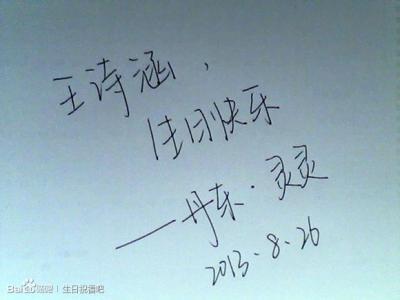 王诗涵，
生日快乐
——丹东·灵灵
2013.8.26
Baidu贴吧 | 生日祝福吧